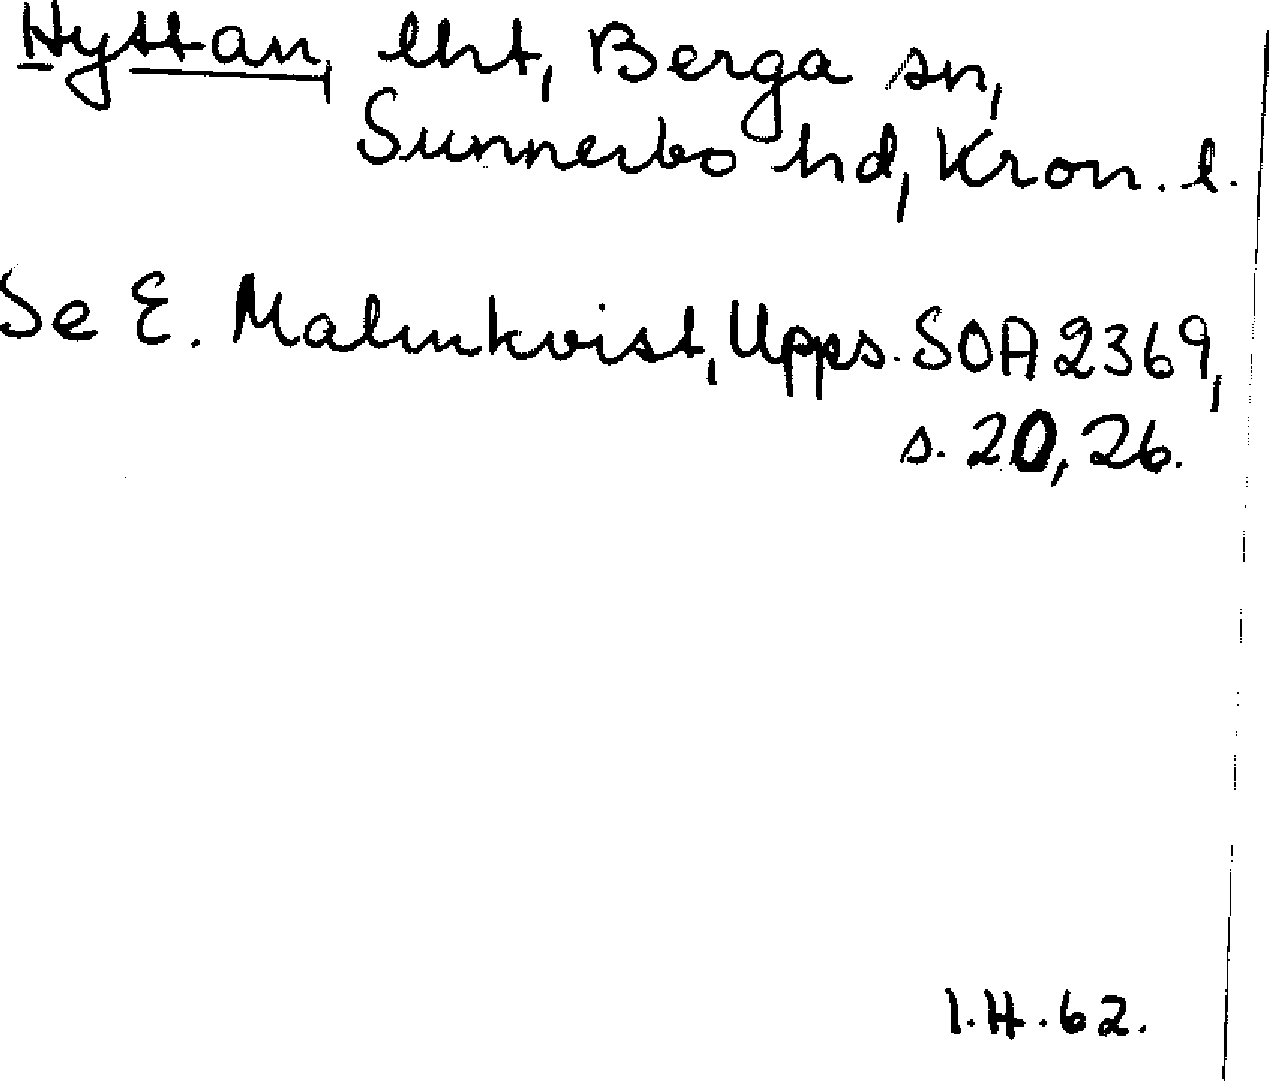 Hyttan, lht, Berga sn,
Sunnerbo hd, Kron. l.
Se E. Malmkvist, Upps. SOA 2369,
s. 20, 26.
I.H. 62.